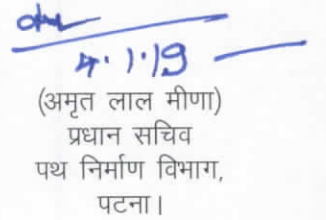 4.1.19
(अमृत लाल मीणा)
प्रधान सचिव
पथ निर्माण विभाग,
पटना।